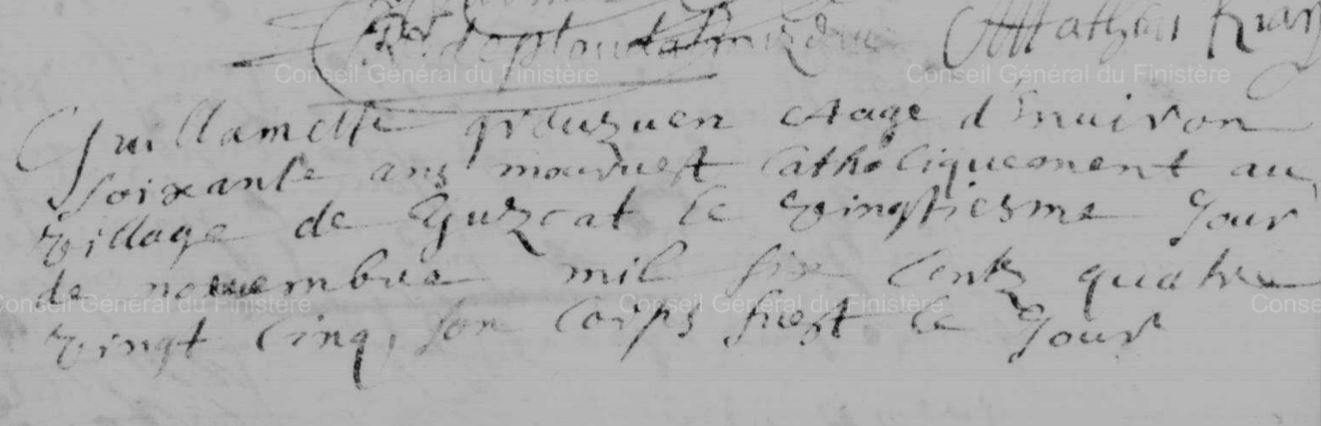 Mathieu
Conseil Général du Finistère Conseil Général du Finistère
Guillamette aage d'enuiron
soixante ans mourust Catholiquement au
village de Guzcat le vingtiesme Jour
de nouembre mil six Centz quatre
Conseil Général du Finistère Conseil Général du Finistère Conse
vingt Cinq, son corps fust le Jour